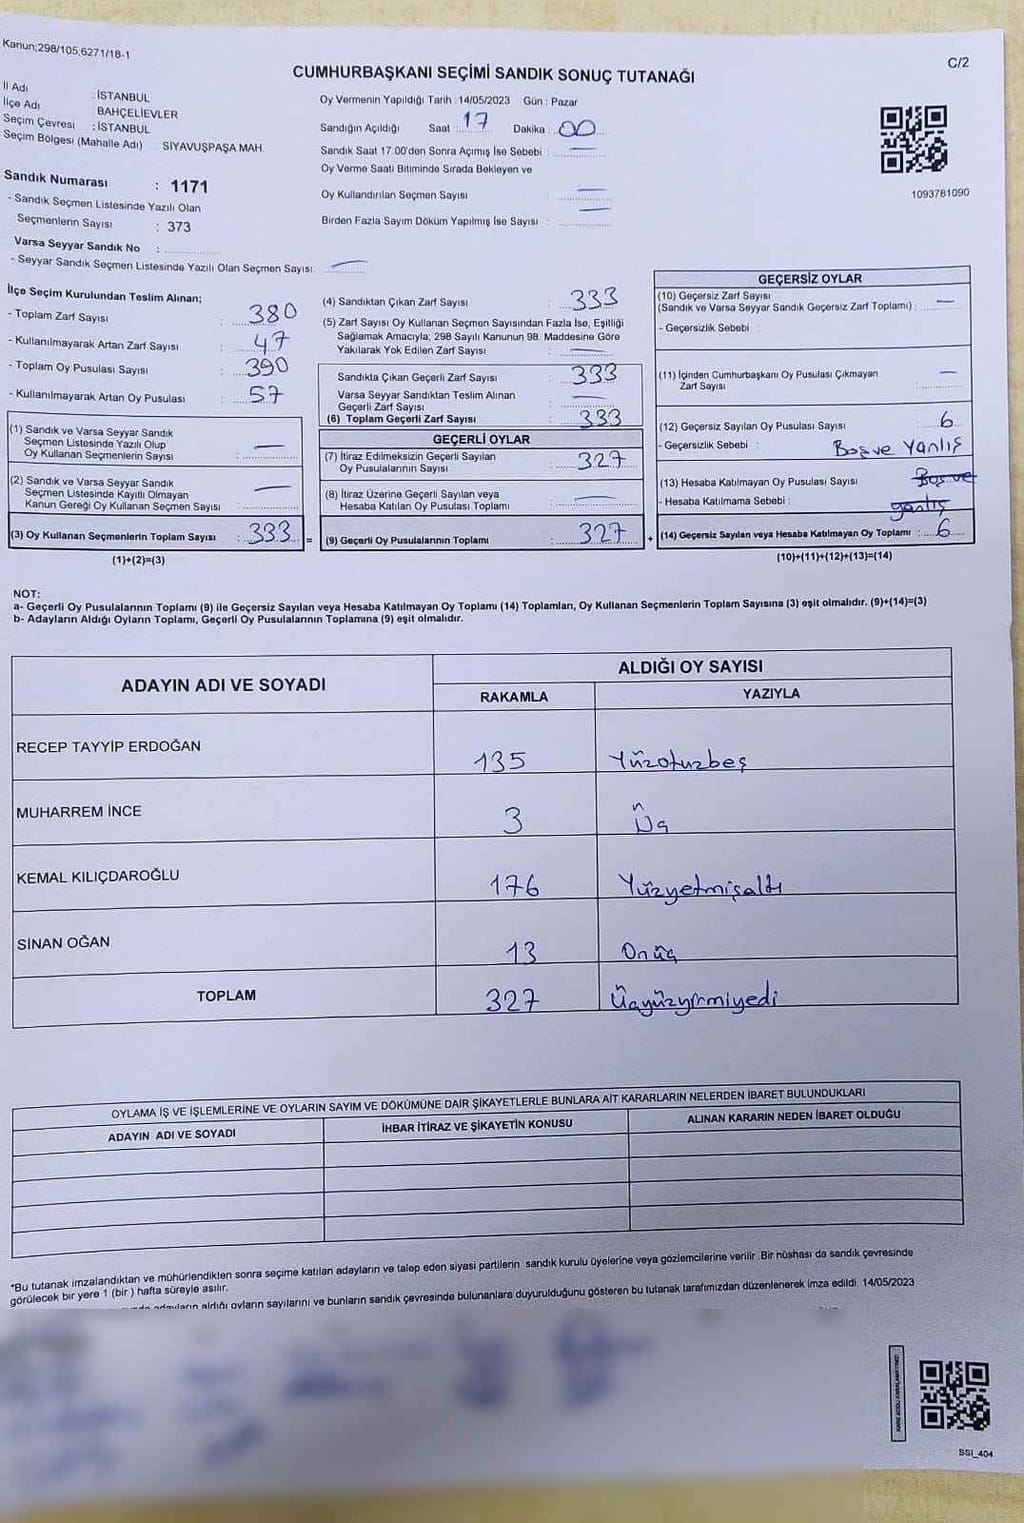 Kanun;298/105,6271/18-1
C/2
CUMHURBAŞKANI SEÇİMİ SANDIK SONUÇ TUTANAĞI
İl Adı : İSTANBUL
İlçe Adı : BAHÇELİEVLER
Seçim Çevresi : İSTANBUL
Seçim Bölgesi (Mahalle Adı) : SİYAVUŞPAŞA MAH.
Oy Vermenin Yapıldığı Tarih :14/05/2023 Gün : Pazar
Sandığın Açıldığı Saat : 17 Dakika : 00
Sandık Saat 17.00'den Sonra Açımış İse Sebebi : —
Oy Verme Saati Bitiminde Sırada Bekleyen ve
Oy Kullandırılan Seçmen Sayısı : —
Birden Fazla Sayım Döküm Yapılmış İse Sayısı : —
1093781090
Sandık Numarası : 1171
- Sandık Seçmen Listesinde Yazılı Olan
Seçmenlerin Sayısı : 373
Varsa Seyyar Sandık No :
- Seyyar Sandık Seçmen Listesinde Yazılı Olan Seçmen Sayısı: —
İlçe Seçim Kurulundan Teslim Alınan;
- Toplam Zarf Sayısı : 380
- Kullanılmayarak Artan Zarf Sayısı : 47
- Toplam Oy Pusulası Sayısı : 390
- Kullanılmayarak Artan Oy Pusulası : 57
(1) Sandık ve Varsa Seyyar Sandık
Seçmen Listesinde Yazılı Olup
Oy Kullanan Seçmenlerin Sayısı : —
(2) Sandık ve Varsa Seyyar Sandık
Seçmen Listesinde Kayıtlı Olmayan
Kanun Gereği Oy Kullanan Seçmen Sayısı : —
(3) Oy Kullanan Seçmenlerin Toplam Sayısı : 333 =
(1)+(2)=(3)
(4) Sandıktan Çıkan Zarf Sayısı : 333
(5) Zarf Sayısı Oy Kullanan Seçmen Sayısından Fazla İse, Eşitliği
Sağlamak Amacıyla; 298 Sayılı Kanunun 98. Maddesine Göre
Yakılarak Yok Edilen Zarf Sayısı : —
Sandıkta Çıkan Geçerli Zarf Sayısı : 333
Varsa Seyyar Sandıktan Teslim Alınan
Geçerli Zarf Sayısı : —
(6) Toplam Geçerli Zarf Sayısı : 333
GEÇERLİ OYLAR
(7) İtiraz Edilmeksizin Geçerli Sayılan
Oy Pusulalarının Sayısı : 327
(8) İtiraz Üzerine Geçerli Sayılan veya
Hesaba Katılan Oy Pusulası Toplamı : —
(9) Geçerli Oy Pusulalarının Toplamı : 327 +
GEÇERSİZ OYLAR
(10) Geçersiz Zarf Sayısı
(Sandık ve Varsa Seyyar Sandık Geçersiz Zarf Toplamı) : —
- Geçersizlik Sebebi :
(11) İçinden Cumhurbaşkanı Oy Pusulası Çıkmayan
Zarf Sayısı : —
(12) Geçersiz Sayılan Oy Pusulası Sayısı : 6
- Geçersizlik Sebebi : Boş ve Yanlış
(13) Hesaba Katılmayan Oy Pusulası Sayısı : Boş ve
- Hesaba Katılmama Sebebi : yanlış
(14) Geçersiz Sayılan veya Hesaba Katılmayan Oy Toplamı : 6
(10)+(11)+(12)+(13)=(14)
NOT:
a- Geçerli Oy Pusulalarının Toplamı (9) ile Geçersiz Sayılan veya Hesaba Katılmayan Oy Toplamı (14) Toplamları, Oy Kullanan Seçmenlerin Toplam Sayısına (3) eşit olmalıdır. (9)+(14)=(3)
b- Adayların Aldığı Oyların Toplamı, Geçerli Oy Pusulalarının Toplamına (9) eşit olmalıdır.
ADAYIN ADI VE SOYADI ALDIĞI OY SAYISI
RAKAMLA YAZIYLA
RECEP TAYYİP ERDOĞAN 135 Yüzotuzbeş
MUHARREM İNCE 3 Üç
KEMAL KILIÇDAROĞLU 176 Yüzyetmişaltı
SİNAN OĞAN 13 Onüç
TOPLAM 327 Üçyüzyirmiyedi
OYLAMA İŞ VE İŞLEMLERİNE VE OYLARIN SAYIM VE DÖKÜMÜNE DAİR ŞİKAYETLERLE BUNLARA AİT KARARLARIN NELERDEN İBARET BULUNDUKLARI
ADAYIN ADI VE SOYADI İHBAR İTİRAZ VE ŞİKAYETİN KONUSU ALINAN KARARIN NEDEN İBARET OLDUĞU
*Bu tutanak imzalandıktan ve mühürlendikten sonra seçime katılan adayların ve talep eden siyasi partilerin sandık kurulu üyelerine veya gözlemcilerine verilir .Bir nüshası da sandık çevresinde
görülecek bir yere 1 (bir ) hafta süreyle asılır.
adayların aldığı oyların sayılarını ve bunların sandık çevresinde bulunanlara duyurulduğunu gösteren bu tutanak tarafımızdan düzenlenerek imza edildi. 14/05/2023
SSI_404